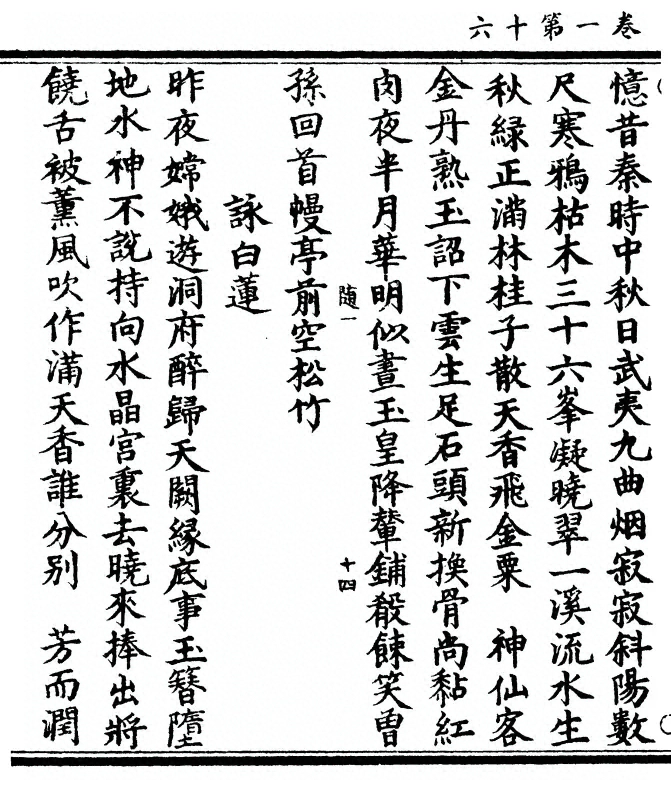 卷一第十六
憶昔秦時中秋日武夷九曲烟寂寂斜陽數
尺寒鴉枯木三十六峯凝曉翠一溪流水生
秋綠正滿林桂子散天香飛金粟　神仙客
金丹熟玉詔下雲生足石頭新換骨尚黏紅
肉夜半月華明似晝玉皇降輦鋪殽餗笑曾
隨一
十四
孫回首幔亭前空松竹
詠白蓮
昨夜嫦娥遊洞府醉歸天闕緣底事玉簪墮
地水神不說持向水晶宮裏去曉來捧出將
饒舌被薰風吹作滿天香誰分別　芳而潤